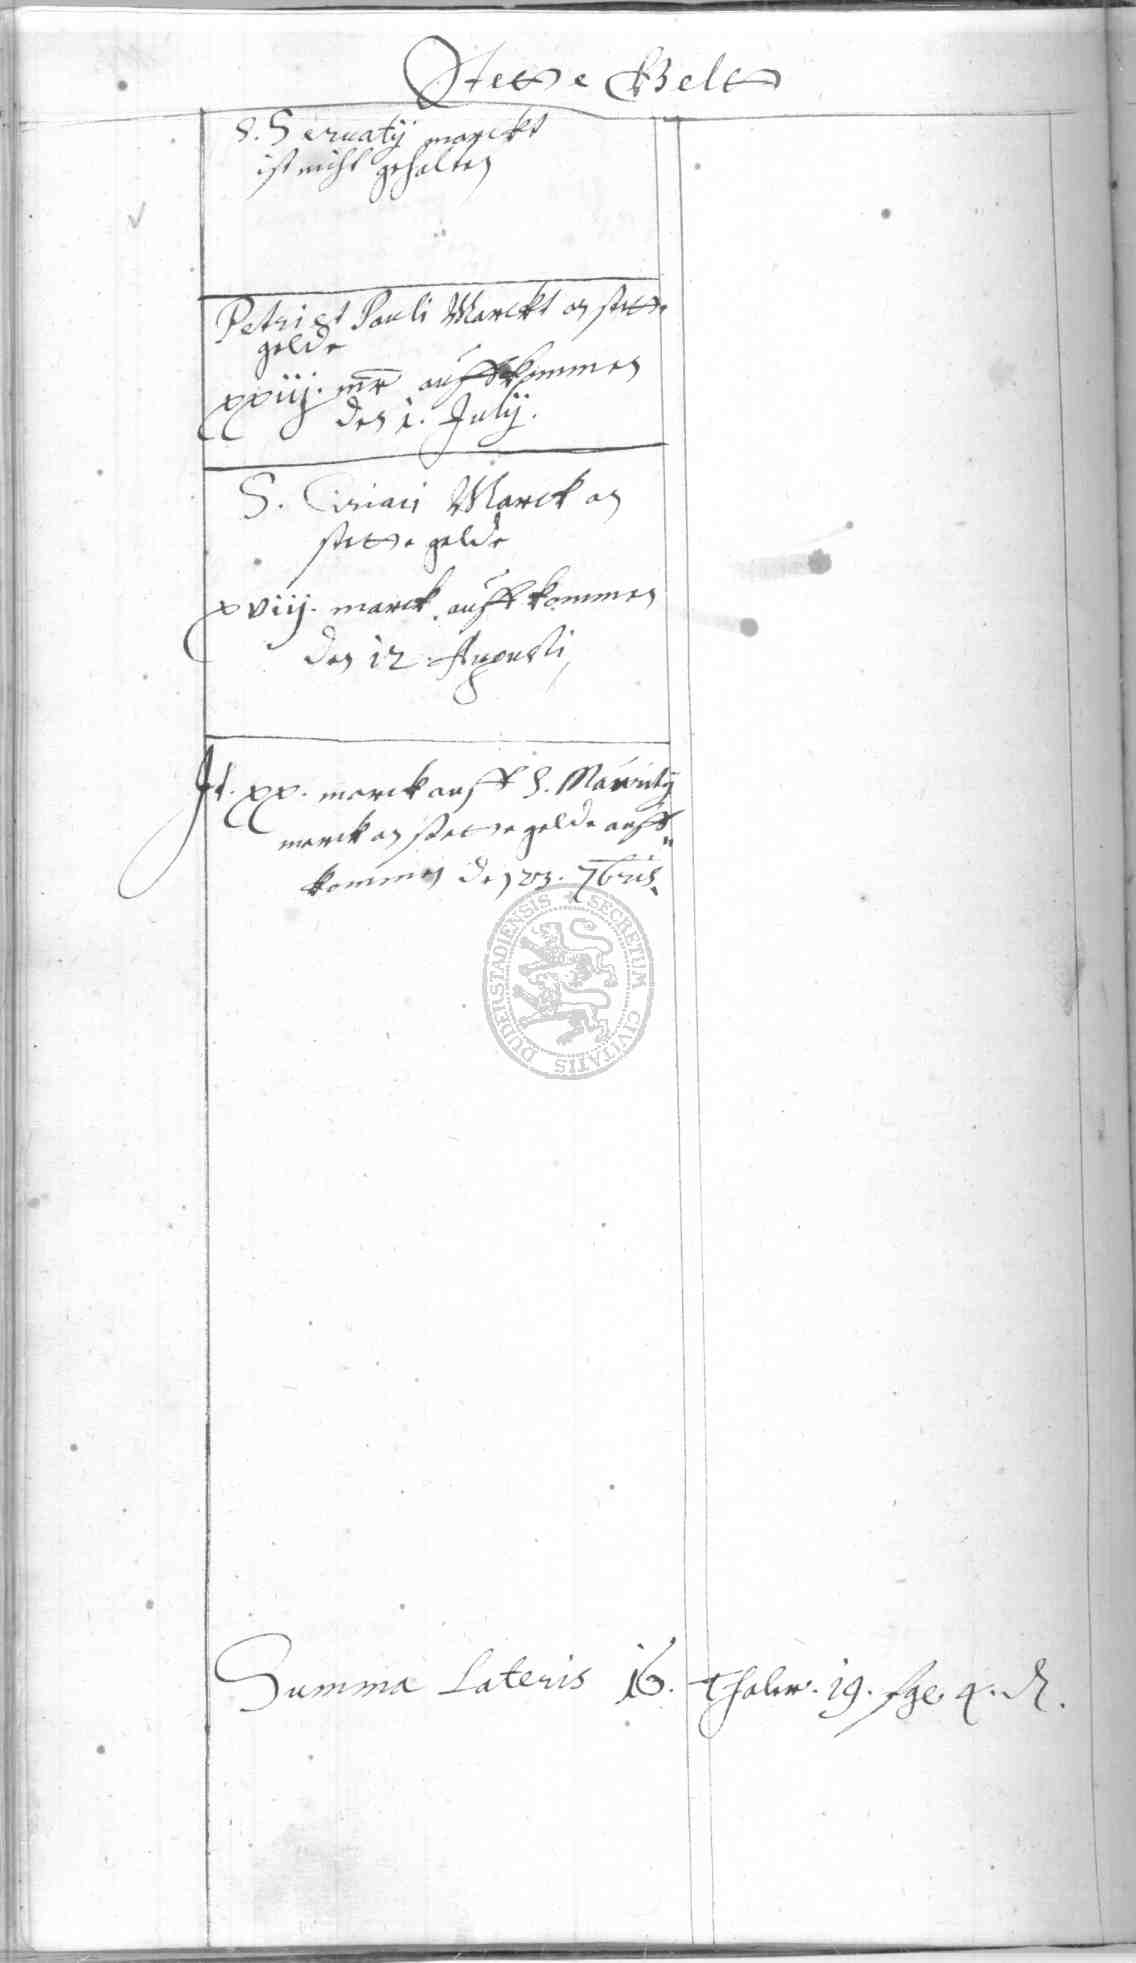 Stette Gelt
S. Servatij marckt
ist nicht gehalten
Petri et Pauli Marckt an stette
gelde
xxiij. mr auffkommen
den 1. Julij.
S. Ciriaci Marck an
stette gelde
xviij. marck auffkommen
den 12. Augusti
It. xx. marck auff S. Mauritij
marck an stette gelde auff
kommen den 23. 7bris.
SECRETUM CIVITATIS DUDERSTADIENSIS
Summa Lateris 16. thaler. 19. sgl. 4. d.